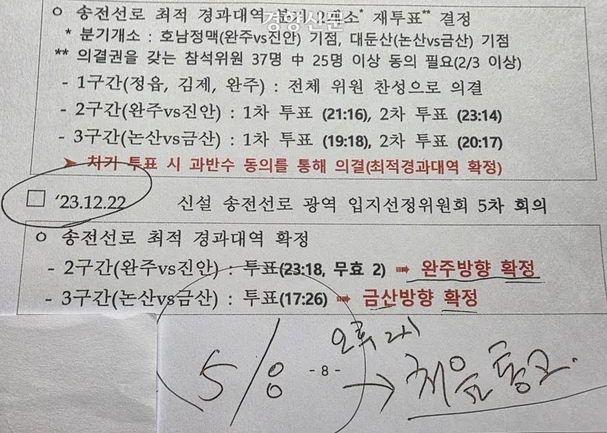 ㅇ 송전선로 최적 경과대역 분기개소* 재투표** 결정
경향신문
* 분기개소 : 호남정맥(완주vs진안) 기점, 대둔산(논산vs금산) 기점
** 의결권을 갖는 참석위원 37명 中 25명 이상 동의 필요(2/3 이상)
- 1구간(정읍, 김제, 완주) : 전체 위원 찬성으로 의결
- 2구간(완주vs진안) : 1차 투표 (21:16), 2차 투표 (23:14)
- 3구간(논산vs금산) : 1차 투표 (19:18), 2차 투표 (20:17)
➤ 차기 투표 시 과반수 동의를 통해 의결(최적경과대역 확정)
□ '23.12.22 신설 송전선로 광역 입지선정위원회 5차 회의
ㅇ 송전선로 최적 경과대역 확정
- 2구간(완주vs진안) : 투표(23:18, 무효 2) ➠ 완주방향 확정
- 3구간(논산vs금산) : 투표(17:26) ➠ 금산방향 확정
오후 2시
5/8 - 8 - → 처음 통고.